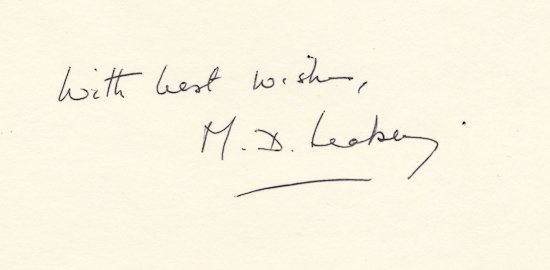 With best wishes,
M. D. Leakey.